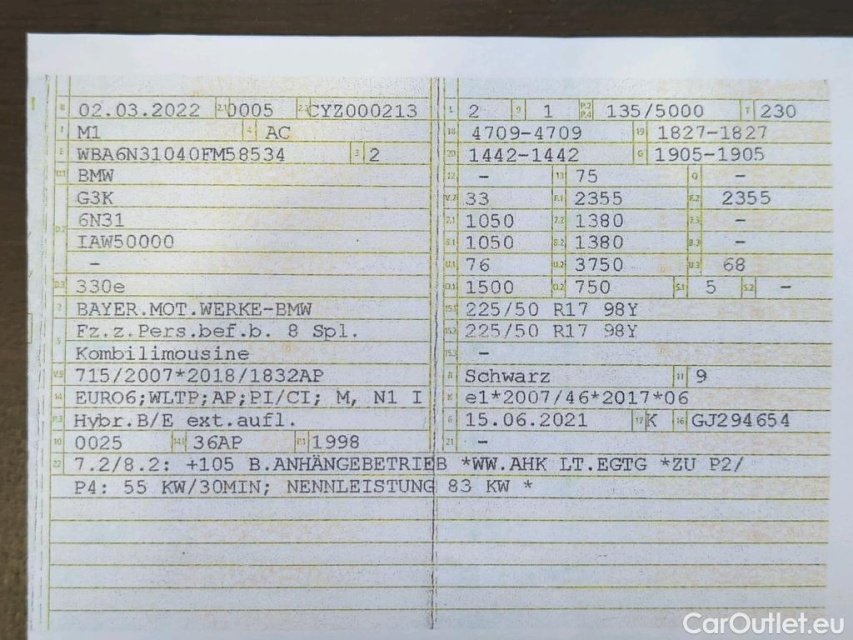 B 02.03.2022 2.1 0005 2.2 CYZ000213
J M1 4 AC
E WBA6N31040FM58534 3 2
D.1 BMW
D.2 G3K
6N31
IAW50000
-
D.3 330e
2 BAYER.MOT.WERKE-BMW
5 Fz.z.Pers.bef.b. 8 Spl.
Kombilimousine
V.9 715/2007*2018/1832AP
14 EURO6;WLTP;AP;PI/CI; M, N1 I
P.3 Hybr.B/E ext.aufl.
10 0025 14.1 36AP P.1 1998
L 2 9 1 P.2 P.4 135/5000 T 230
18 4709-4709 19 1827-1827
20 1442-1442 G 1905-1905
12 - 13 75 Q -
V.7 33 F.1 2355 F.2 2355
7.1 1050 7.2 1380 7.3 -
8.1 1050 8.2 1380 8.3 -
U.1 76 U.2 3750 U.3 68
O.1 1500 O.2 750 S.1 5 S.2 -
15.1 225/50 R17 98Y
15.2 225/50 R17 98Y
15.3 -
R Schwarz 11 9
K e1*2007/46*2017*06
6 15.06.2021 17 K 16 GJ294654
21 -
22 7.2/8.2: +105 B.ANHÄNGEBETRIEB *WW.AHK LT.EGTG *ZU P2/
P4: 55 KW/30MIN; NENNLEISTUNG 83 KW *
CarOutlet.eu